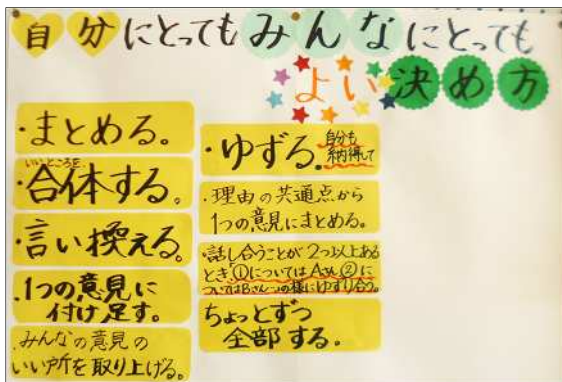 自分にとってもみんなにとっても
よい決め方
・まとめる。
いいところを
・合体する。
・言い換える。
・1つの意見に
付け足す。
・みんなの意見の
いい所を取り上げる。
・ゆずる。
自分も
納得して
・理由の共通点から
1つの意見にまとめる。
・話し合うことが2つ以上ある
とき、①についてはAさん②に
ついてはBさん…の様にゆずり合う。
ちょっとずつ
全部する。